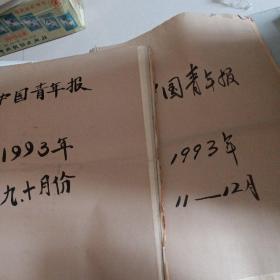 中国青年报
1993年
九.十月份
国青年报
1993年
11—12月